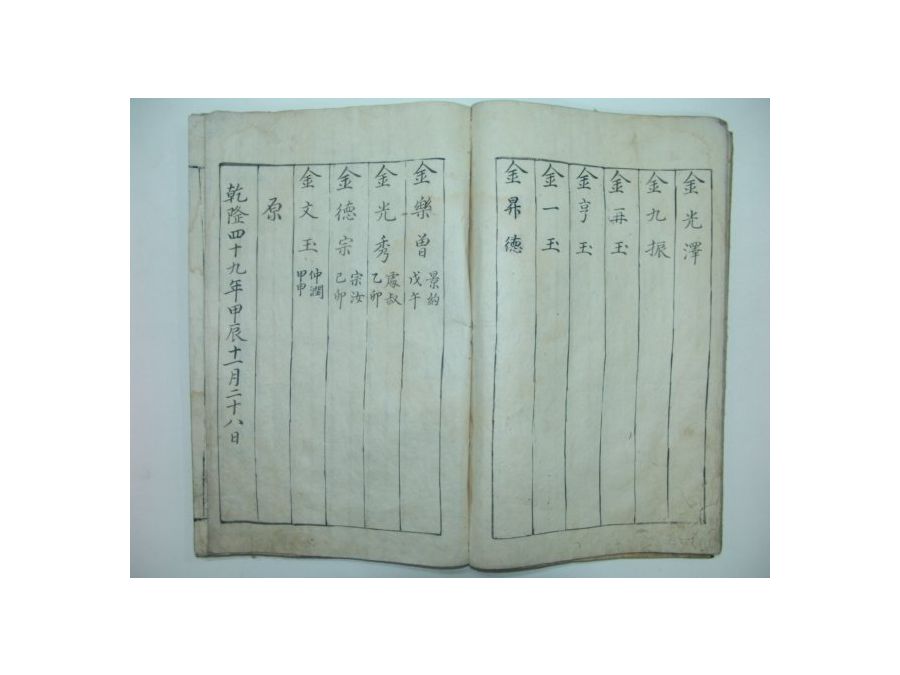 金光澤
金九振
金再玉
金亨玉
金一玉
金昇德
金樂曾 景約 戊午
金光秀 處叔 乙卯
金德宗 宗汝 己卯
金文玉 仲潤 甲申
原
乾隆四十九年甲辰十一月二十八日